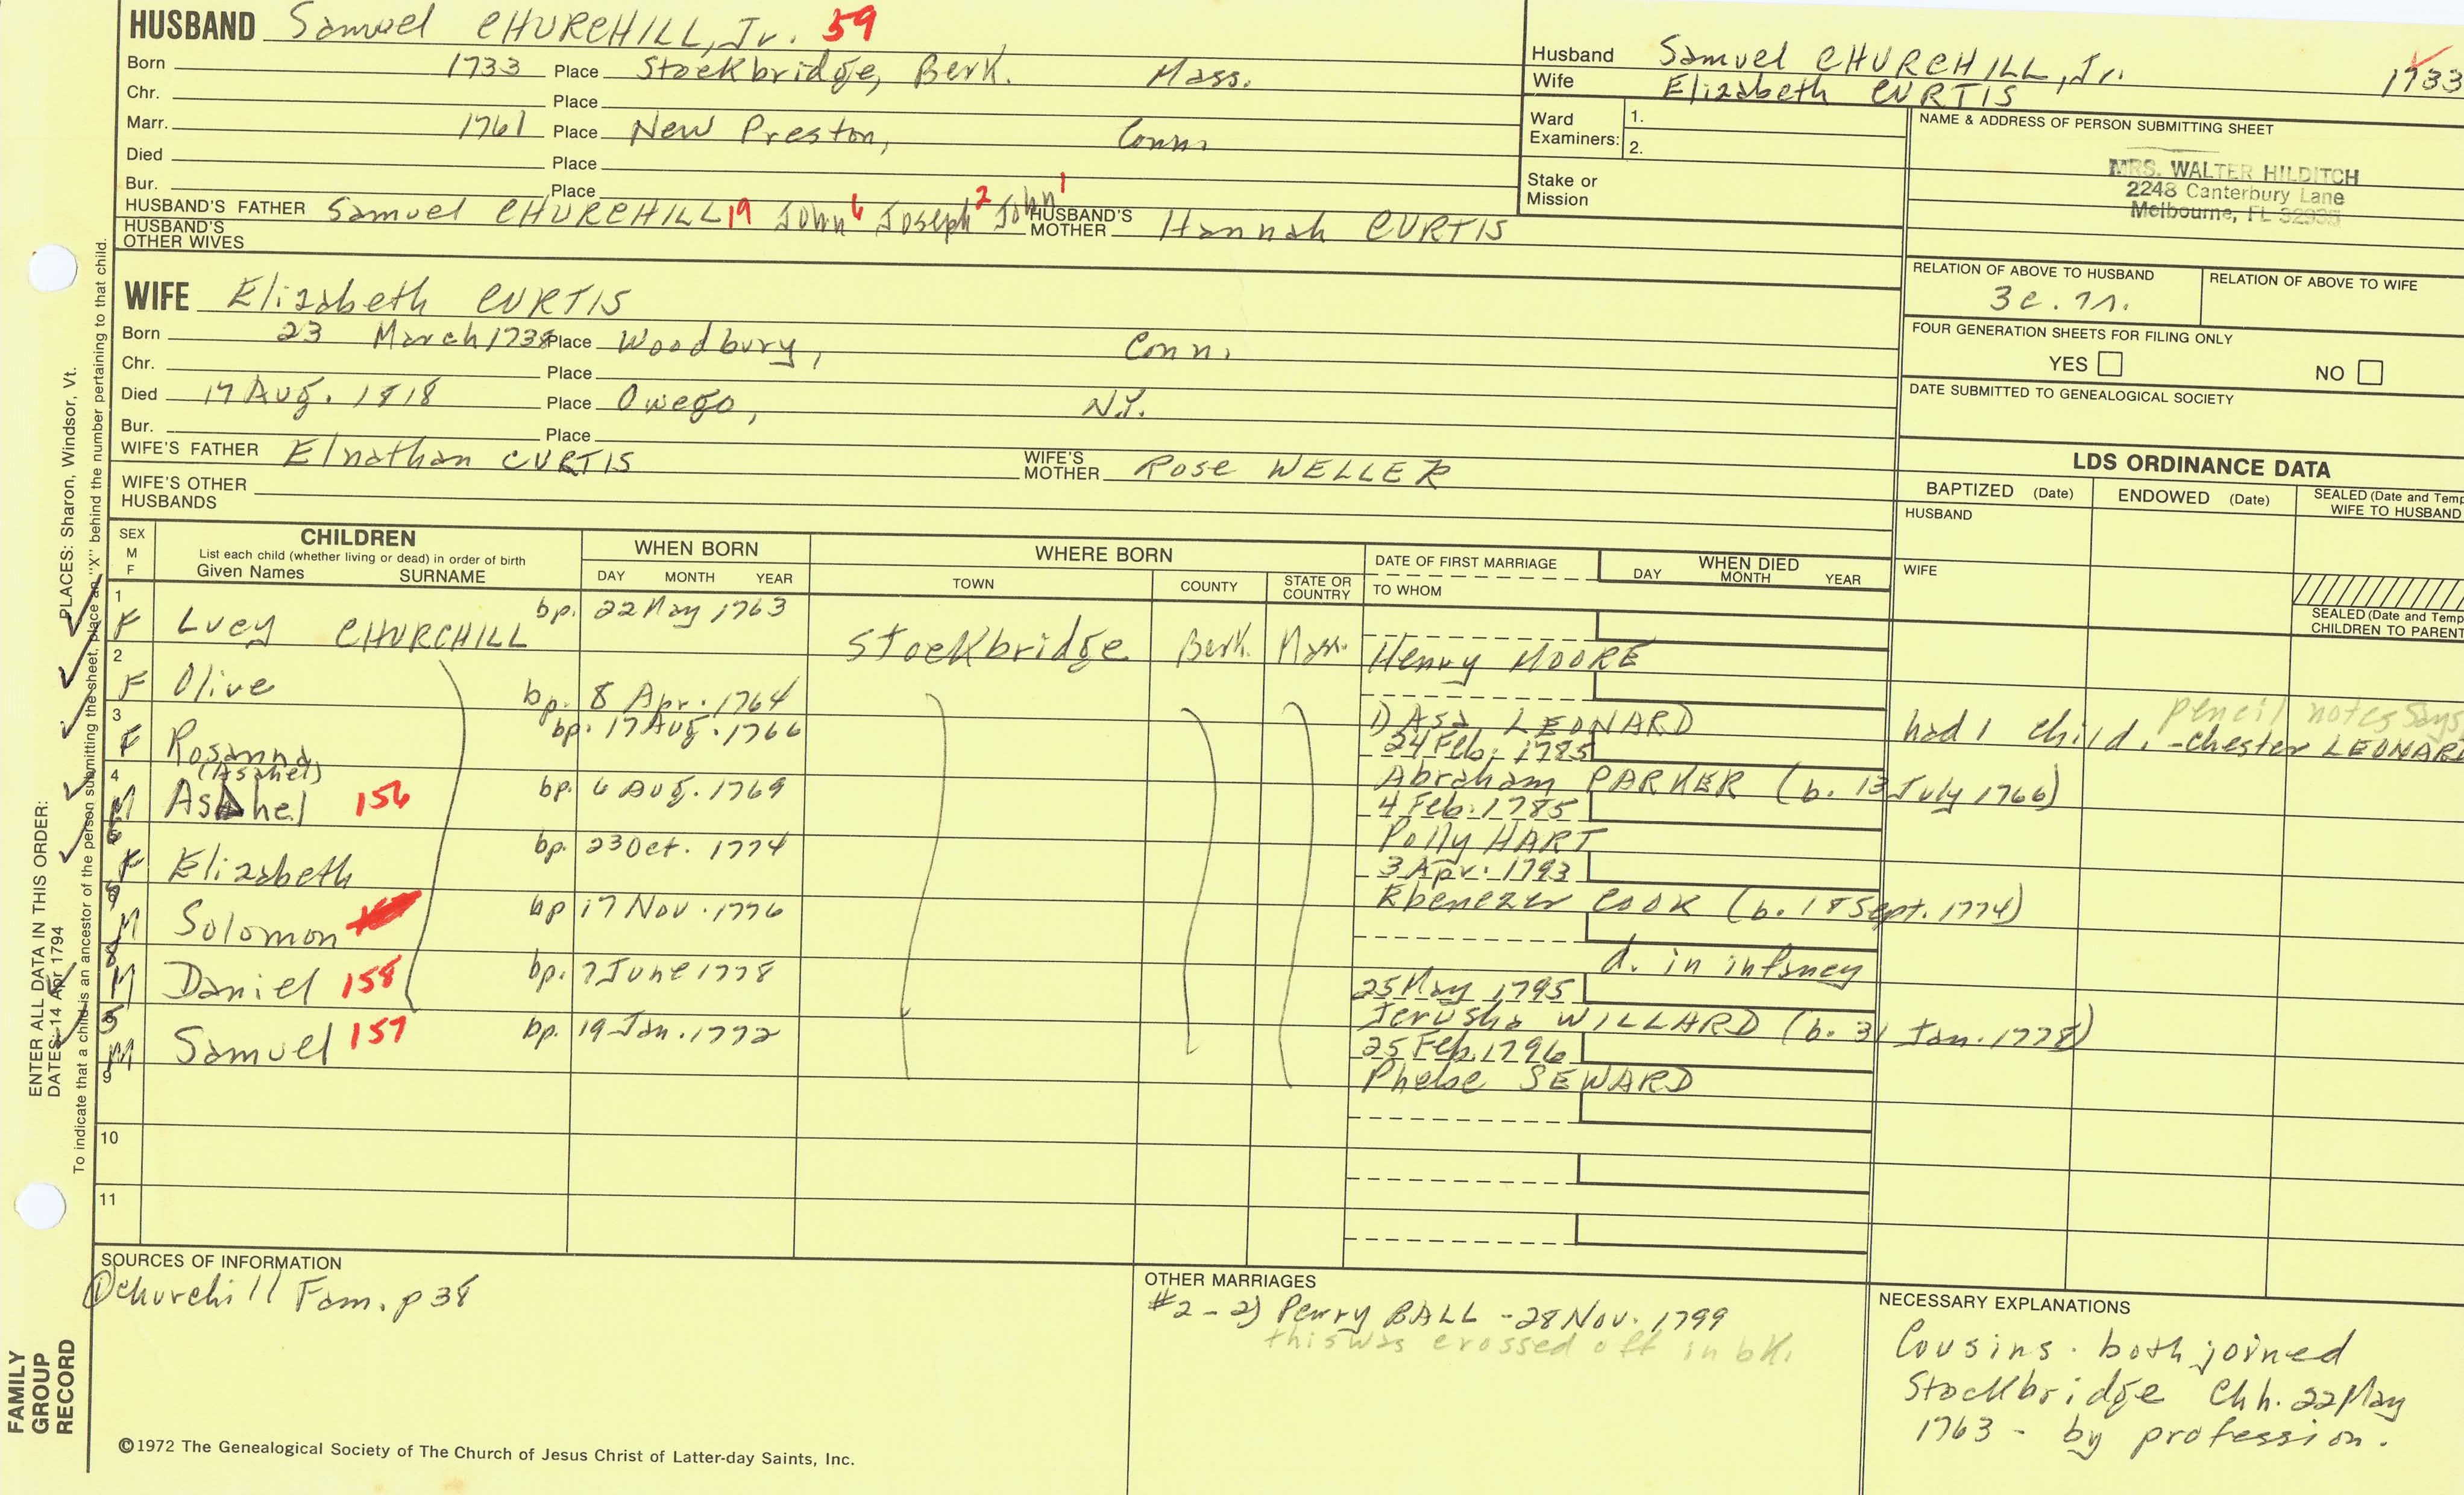 HUSBAND Samuel CHURCHILL, Jr. 59
Born 1733 Place Stockbridge, Berk. Mass.
Chr. Place
Marr. 1761 Place New Preston, Conn.
Died Place
Bur. Place
HUSBAND'S FATHER Samuel CHURCHILL 19 John 6 Joseph 2 John 1 HUSBAND'S MOTHER Hannah CURTIS
HUSBAND'S OTHER WIVES
Husband Samuel CHURCHILL, Jr. 1733
Wife Elizabeth CURTIS
Ward Examiners: 1.
2.
Stake or Mission
NAME & ADDRESS OF PERSON SUBMITTING SHEET
MRS. WALTER HILDITCH
2248 Canterbury Lane
Melbourne, FL 32935
RELATION OF ABOVE TO HUSBAND
3c. 7r.
RELATION OF ABOVE TO WIFE
FOUR GENERATION SHEETS FOR FILING ONLY
YES NO
DATE SUBMITTED TO GENEALOGICAL SOCIETY
WIFE Elizabeth CURTIS
Born 23 March 1738 Place Woodbury, Conn.
Chr. Place
Died 17 Aug. 1818 Place Owego, N.Y.
Bur. Place
WIFE'S FATHER Elnathan CURTIS WIFE'S MOTHER Rose WELLER
WIFE'S OTHER HUSBANDS
LDS ORDINANCE DATA
BAPTIZED (Date) ENDOWED (Date) SEALED (Date and Temp
WIFE TO HUSBAND
HUSBAND
WIFE
SEALED (Date and Temp
CHILDREN TO PARENT
SEX M F
CHILDREN
List each child (whether living or dead) in order of birth
Given Names SURNAME
WHEN BORN
DAY MONTH YEAR
WHERE BORN
TOWN COUNTY STATE OR COUNTRY
DATE OF FIRST MARRIAGE
TO WHOM
WHEN DIED
DAY MONTH YEAR
1 F Lucy CHURCHILL bp. 22 May 1763 Stockbridge Berk. Mass. Henry MOORE
2 F Olive bp. 8 Apr. 1764 1) Asa LEONARD had 1 child. - Chester LEONARD
pencil notes says
3 F Rosanna bp. 17 Aug. 1766 24 Feb. 1785 Abraham PARKER (b. 13 July 1766)
(Asahel)
4 M Asahel 156 bp. 6 Aug. 1769 4 Feb. 1785 Polly HART
6 F Elizabeth bp. 23 Oct. 1774 3 Apr. 1793 Ebenezer COOK (b. 18 Sept. 1774)
M Solomon bp 17 Nov. 1776 d. in infancy
8 M Daniel 158 bp. 7 June 1778 25 May 1795 Jerusha WILLARD (b. 31 Jan. 1778)
5 M Samuel 157 bp. 19 Jan. 1772 25 Feb. 1796 Phebe SEWARD
9
10
11
SOURCES OF INFORMATION
① Churchill Fam. p 38
OTHER MARRIAGES
#2 - 2) Perry BALL - 28 Nov. 1799
this was crossed off in bk.
NECESSARY EXPLANATIONS
Cousins. both joined
Stockbridge Chh. 22 May
1763 - by profession.
©1972 The Genealogical Society of The Church of Jesus Christ of Latter-day Saints, Inc.
FAMILY
GROUP
RECORD
ENTER ALL DATA IN THIS ORDER:
DATES: 14 Apr 1794 PLACES: Sharon, Windsor, Vt.
To indicate that a child is an ancestor of the person submitting the sheet, place an "X" behind the number pertaining to that child.